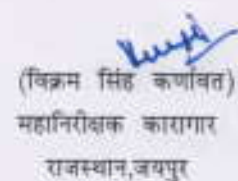 (विक्रम सिंह कर्णावत)
महानिरीक्षक कारागार
राजस्थान,जयपुर